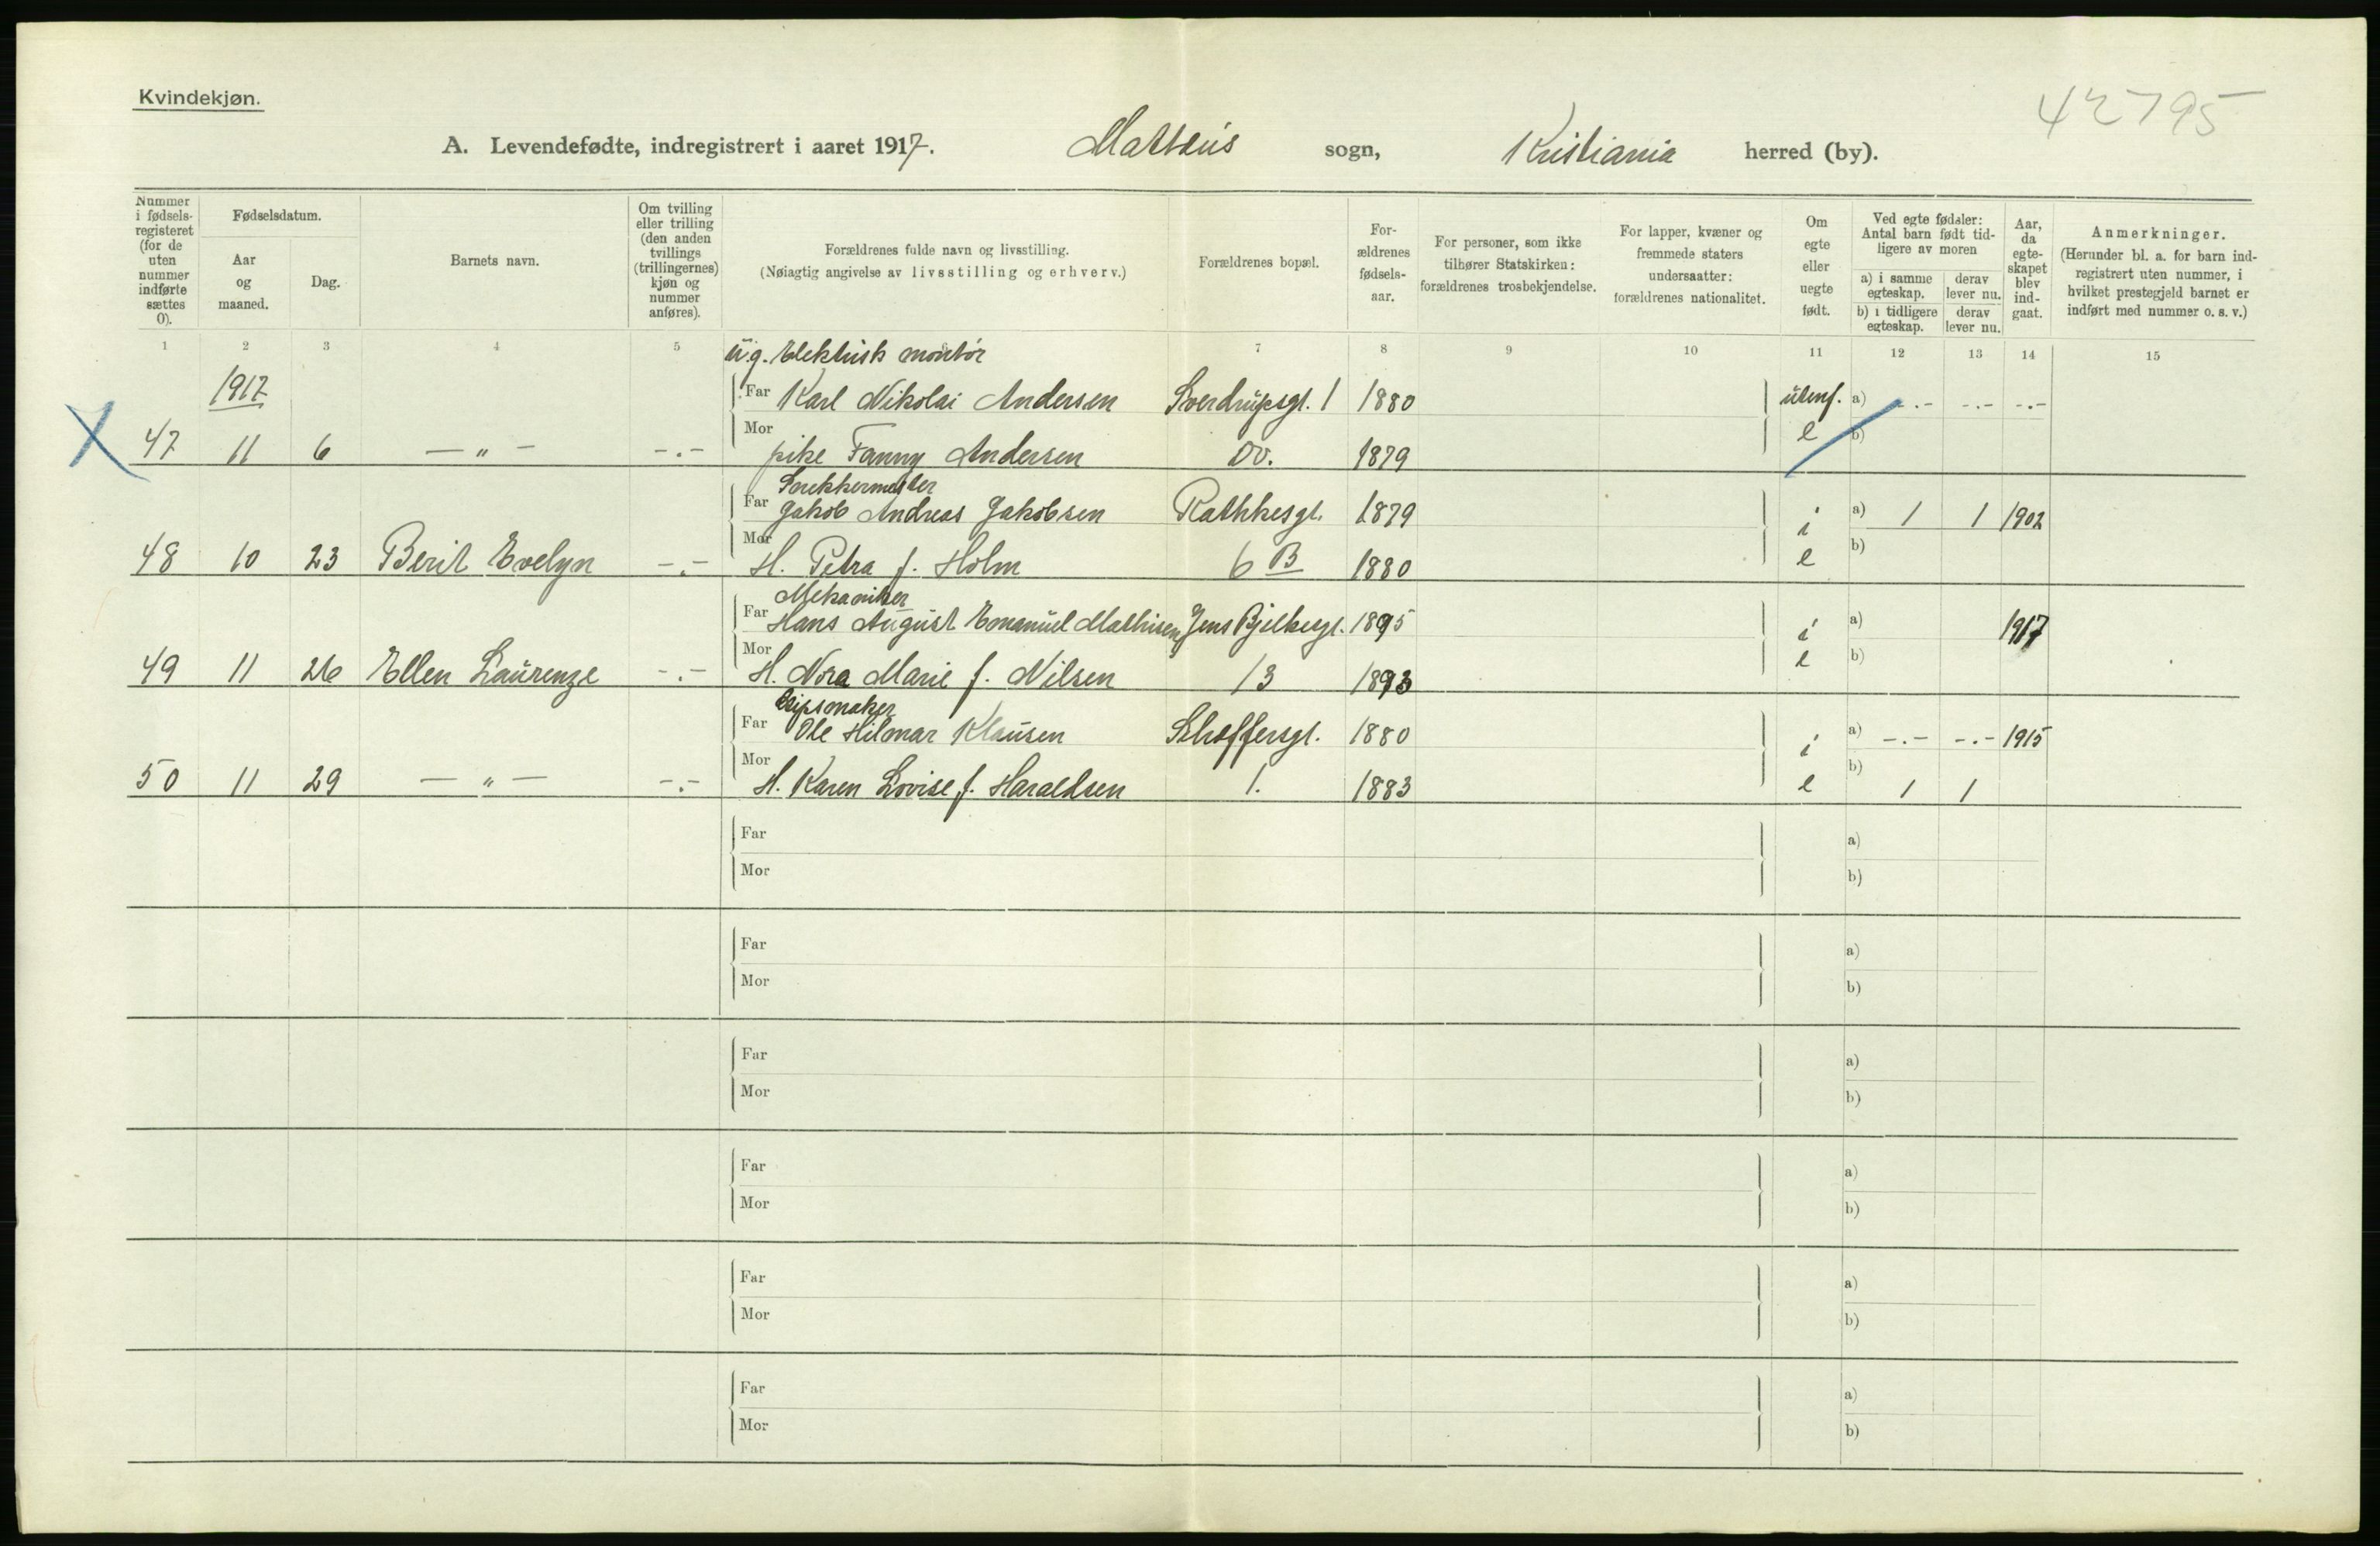 Kvindekjøn.
42795
A. Levendefødte, indregistrert i aaret 1917. Mattæus sogn, Kristiania herred (by).
Nummer i fødsels-registeret (for de uten nummer indførte sættes 0).
Fødselsdatum.
Aar og maaned.
Dag.
Barnets navn.
Om tvilling eller trilling (den anden tvillings (trillingernes) kjøn og nummer anføres).
Forældrenes fulde navn og livsstilling.
(Nøiagtig angivelse av livsstilling og erhverv.)
Forældrenes bopæl.
For-ældrenes fødsels-aar.
For personer, som ikke tilhører Statskirken: forældrenes trosbekjendelse.
For lapper, kvæner og fremmede staters undersaatter: forældrenes nationalitet.
Om egte eller uegte født.
Ved egte fødsler: Antal barn født tid-ligere av moren
a) i samme egteskap. derav lever nu.
b) i tidligere egteskap. derav lever nu.
Aar, da egte-skapet blev ind-gaat.
Anmerkninger.
(Herunder bl. a. for barn ind-registrert uten nummer, i hvilket prestegjeld barnet er indført med nummer o. s. v.)
1 2 3 4 5 7 8 9 10 11 12 13 14 15
ug. Elektrisk montør
1917 Far Karl Nikolai Andersen Sverdrupsgt. 1 1880 utenf. a) -.- -.- -.-
X 47 11 6 — " — -.- Mor pike Fanny Andersen Do. 1879 e b)
Snekkermester
Far Jakob Andreas Jakobsen Rathkesgt. 1879 i a) 1 1 1902
48 10 23 Berit Evelyn -.- Mor H. Petra f. Holm 6 B 1880 e b)
Mekaniker
Far Hans August Emanuel Mathisen Jens Bjelkesgt. 1895 i a) 1917
49 11 26 Ellen Laurenze -.- Mor H. Nora Marie f. Nilsen 13 1893 e b)
Gipsmaker
Far Ole Hilmar Klausen Schøffersgt. 1880 i a) -.- -.- 1915
50 11 29 — " — -.- Mor H. Karen Lovise f. Haraldsen 1. 1883 e b) 1 1
Far a)
Mor b)
Far a)
Mor b)
Far a)
Mor b)
Far a)
Mor b)
Far a)
Mor b)
Far a)
Mor b)